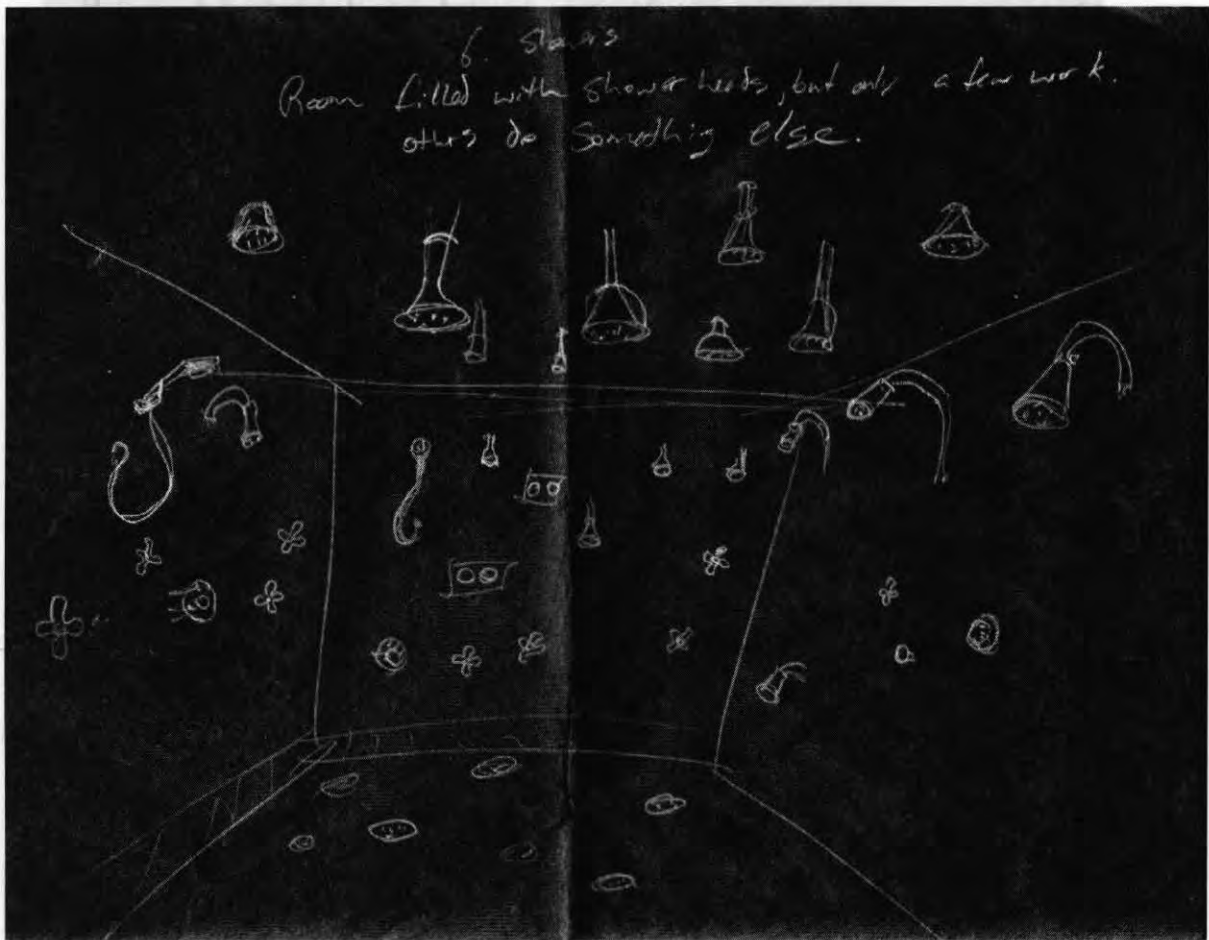 6. showers
Room filled with shower heads, but only a few work.
others do something else.